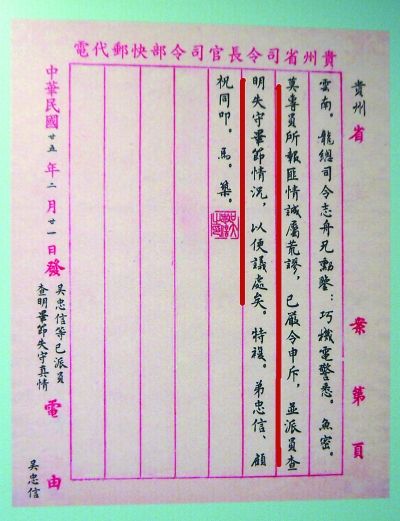 貴州省司令長官司令部快郵代電
貴州省 案第頁
雲南。龍總司令志舟兄勳鑒：巧機電警悉。魚密。
莫專員所報匪情誠屬荒謬，已嚴令申斥，並派員查
明失守畢節情況，以便議處矣。特複。弟忠信、顧
祝同叩。馬。築。
中華民國廿五年二月廿一日發電由
吳忠信等已派員
查明畢節失守真情
吳忠信